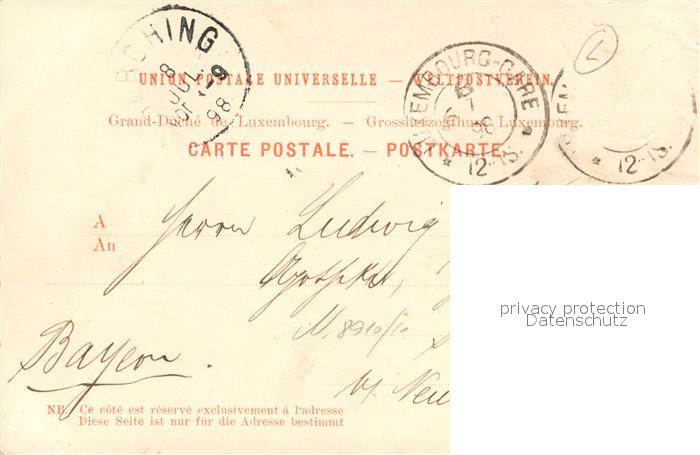 RCHING
8
JUL
98
LUXEMBOURG-GARE
7
98
12-1S.
12-1S.
L
UNION POSTALE UNIVERSELLE — WELTPOSTVEREIN.
Grand-Duché de Luxembourg. — Grossherzogthum Luxemburg.
CARTE POSTALE. — POSTKARTE.
A
An
Herrn Ludwig
Apotheker,
N. 8910/10
Bayern.
b/ Neu
privacy protection
Datenschutz
NB. Ce côté est réservé exclusivement à l'adresse.
Diese Seite ist nur für die Adresse bestimmt